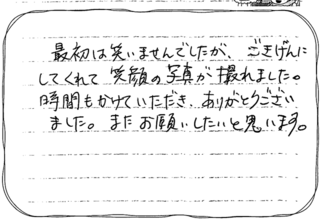 最初は笑いませんでしたが、ごきげんに
してくれて笑顔の写真が撮れました。
時間もかけていただき、ありがとうござい
ました。またお願いしたいと思います。